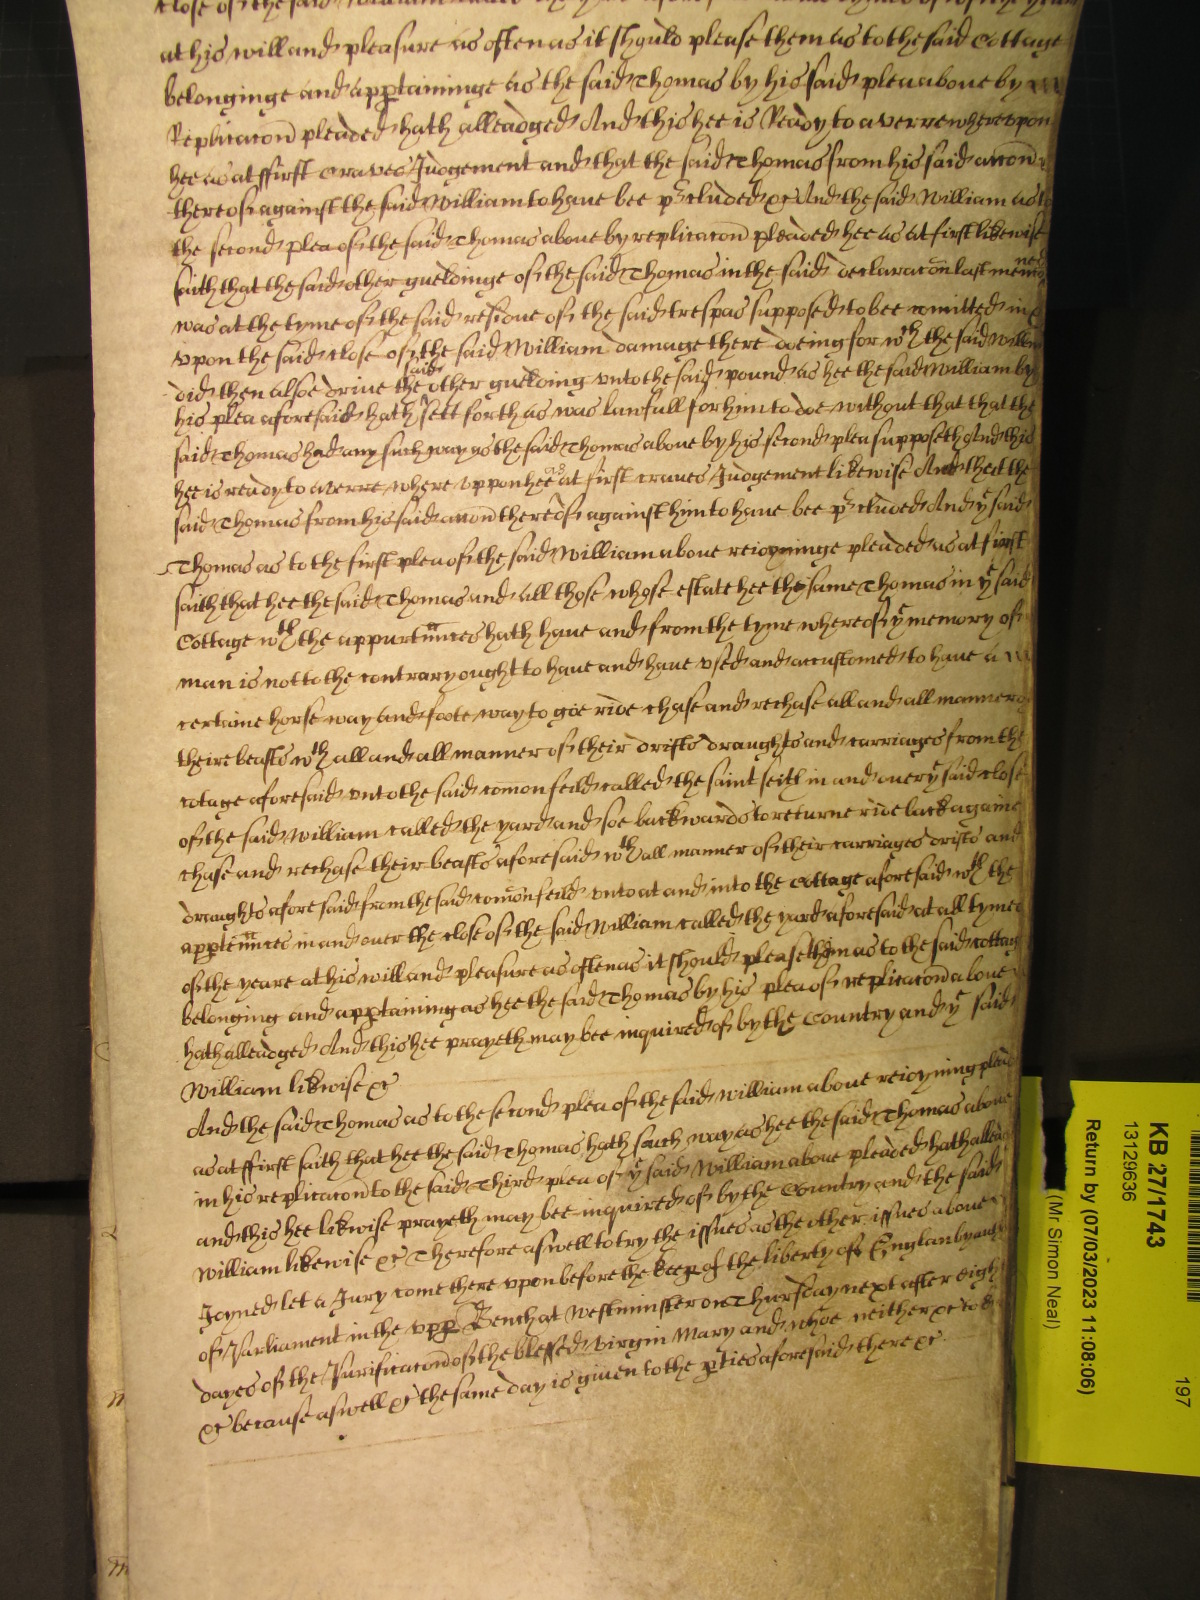 close of the said William
at his will and pleasure as often as it should please them as to the said Cottage
belonginge and apptaininge as the said Thomas by his said plea aboue by
Replicacon pleaded hath alleadged And this hee is Ready to averre whereupon
hee as at ffirst craves Judgement and that the said Thomas from his said accon
thereof against the said William to haue bee pcluded &c And the said William as to
the second plea of the said Thomas aboue by replicacon pleaded hee as at first likewise
saith that the said other gueldinge of the said Thomas in the said declaracon last mencioned
was at the tyme of the said residue of the said trespas supposed to bee comitted in &
vpon the said close of the said William damage there doeing for wth the said Willm
did then alsoe drive the said other guelding vnto the said pound as hee the said William by
his plea aforesaid hath sett forth as was lawfull for him to doe without that that the
said Thomas had any such way as the said Thomas aboue by his second plea supposeth And this
hee is ready to averre where vppon hee as at first craues Judgement likewise And that the
said Thomas from his said accon thereof against him to haue bee pcluded And ye said
Thomas as to the first plea of the said William aboue reioyninge pleaded as at first
saith that hee the said Thomas and all those whose estate hee the same Thomas in ye said
Cottage wth the appurtnnces hath haue and from the tyme whereof ye memory of
man is not to the contrary ought to haue and haue vsed and accustomed to haue a
certaine horse way and foote way to goe ride chase and rechase all and all manner of
theire beasts wth all and all manner of their drifts draughts and carriages from the
cotage aforesaid vnto the said comon feild called the saint feild in and ouer ye said close
of the said William called the yard and soe backwards to returne ride back againe
chase and rechase their beasts aforesaid wth all manner of their carriages drifts and
draughts aforesaid from the said comon feild vnto at and into the Cottage aforesaid wth the
apptennces in and ouer the close of the said William called the yard aforesaid at all tymes
of the yeare at his will and pleasure as often as it should please them as to the said cottage
belonging and apptaining as hee the said Thomas by his plea of replicacon aboue
hath alleadged And this hee prayeth may bee inquired of by the Country and ye said
William likwise &c
And the said Thomas as to the second plea of the said william aboue reioyning pleaded
as at ffirst saith that hee the said Thomas hath such way as hee the said Thomas aboue
in his replicacon to the said Third plea of ye said William aboue pleaded hath alleadged
and this hee likwise prayeth may bee inquired of by the Country and the said
William likewise &c Therefore aswell to try the issues as the other issues aboue
Joyned let a Jury come there vpon before the keep of the liberty of England by auth
of Parliament in the vpp Bench at Westminster on Thursday next after eight
dayes of the Purificacon of the blessed virgin Mary and whoe neither &c to
&c because aswell &c the same day is giuen to the pties aforesaid there &c
KB 27/1743
13129636
Return by (07/03/2023 11:08:06)
(Mr Simon Neal)
197